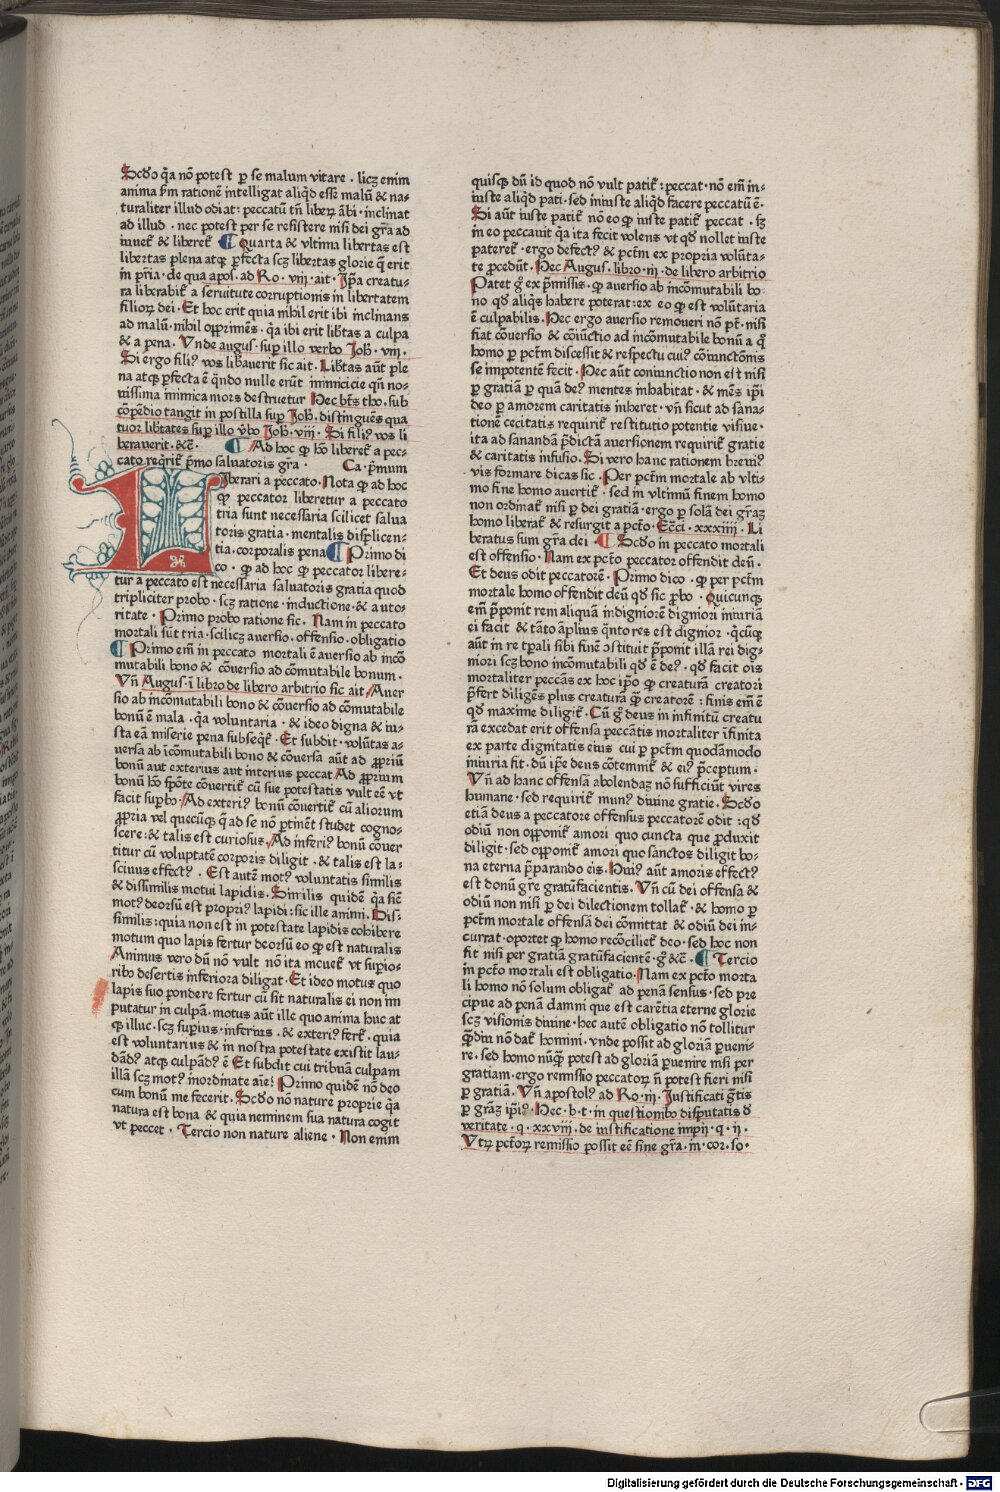 Scḋo q̈a nō potest ꝑ se malum vitare . licꝫ enim
anima ꝑm rationē intelligat aliqͥd esse malū & na-
turaliter illud odiat : peccatū tn̄ liberꝝ ābi · inclinat
ad illud . nec potest per se resistere nisi dei gr̄a ad
iuuetᷣ & liberetᷣ ¶ Quarta & vltima libertas est
libertas plena atqꝫ ꝑfecta scꝫ libertas glorie q̄ erit
in pr̄ia · de qua apos . ad Ro . viij . ait . Ip̄a creatu-
ra liberabitᷣ a seruitute corruptionis in libertatem
filioꝝ dei . Et hoc erit quia nihil erit ibi inclinans
ad malū . nihil opprimēs . q̄a ibi erit lib̄tas a culpa
& a pena . Vnde augꝰ . suꝑ illo verbo Joh̄ . viij .
Si ergo filiꝰ vos lib̄auerit sic ait . Lib̄tas aūt ple
na atqꝫ ꝑfecta ē qn̄do nulle erūt inimicicie qn̄ no-
uissima inimica mors destruetur Hec bt̄s tho . sub
cōpēdio tangit in postilla suꝑ Joh̄ . distinguēs qua
tuor lib̄tates suꝑ illo v̄bo Joh̄ . viij . Si filiꝰ vos li
berauerit . &c̄ . ¶ Ad hoc ꝙ hō liberetᷣ a pec-
cato reqͥritᷣ pͥmo saluatoris gr̄a . Ca . pͥmum
Liberari a peccato . Nota ꝙ ad hoc
ꝙ peccator liberetur a peccato
tria sunt necessaria scilicet salua
toris gratia · mentalis displicen-
tia . corporalis pena ¶ Primo di
co . ꝙ ad hoc ꝙ peccator libere-
tur a peccato est necessaria saluatoris gratia quod
tripliciter probo . scꝫ ratione . inductione . & aucto-
ritate . Primo probo ratione sic . Nam in peccato
mortali sūt tria . scilicꝫ auersio . offensio . obligatio
¶ Primo em̄ in peccato mortali ē auersio ab incō
mutabili bono & cōuersio ad cōmutabile bonum .
Vn̄ Augus . ī libro de libero arbitrio sic ait . Auer
sio ab incōmutabili bono & cōuersio ad cōmutabile
bonū ē mala . q̄a voluntaria . & ideo digna & iu-
sta eā miserie pena subseqͥtᷣ . Et subdit . volūtas a-
uersa ab īcōmutabili bono & cōuersa aūt ad ꝓpriū
bonū aut exterius aut interius peccat Ad ꝓprium
bonū hō spōte cōuertitᷣ cū sue potestatis vult eē vt
facit suꝑbo . Ad exteriꝰ bonū cōuertitᷣ cū aliorum
ꝓpria vel quecūqꝫ q̄ ad se nō ꝑtinēt studet cogno-
scere : & talis est curiosus . Ad inferiꝰ bonū cōuer
titur cū voluptatē corporis diligit . & talis est la-
sciuus effectꝰ . Est autē motꝰ voluntatis similis
& dissimilis motui lapidis . Similis quidē q̄a siē
motꝰ deorsū est propriꝰ lapidi : sic ille animi . Dis-
similis : quia non est in potestate lapidis cohibere
motum quo lapis fertur deorsū eo ꝙ est naturalis
Animus vero dū nō vult nō ita mouetᷣ vt supio-
ribꝰ desertis inferiora diligat . Et ideo motus quo
lapis suo pondere fertur cū sit naturalis ei non im
putatur in culpā . motus aūt ille quo anima huc at
qꝫ illuc . scꝫ suꝑius . inferius . & exteriꝰ fertᷣ . quia
est voluntarius & in nostra potestate existit lau-
dādꝰ atqꝫ culpādꝰ ē Et subdit cui tribuā culpam
illā scꝫ motꝰ inordinate aīe ? Primo quidē nō deo
cum bonū me fecerit . Scḋo nō nature proprie q̄a
natura est bona & quia neminem sua natura cogit
vt peccet . Tercio non nature aliene . Non enim
quisqꝫ dū id quod nō vult patitᷣ : peccat . nō em̄ in-
iuste aliqͥd pati . sed iniuste aliqͥd facere peccatū ē .
Si aūt iuste patitᷣ nō eo ꝙ iuste patitᷣ peccat . sꝫ
in eo peccauit q̄a ita fecit volens vt qḋ nollet iuste
pateretᷣ . ergo defectꝰ & pctm̄ ex propria volūta-
te ꝓcedūt . Hec Augus . libro . iij . de libero arbitrio
Patet gͦ ex pͥmissis . ꝙ auersio ab incōmutabili bo-
no qḋ aliqͥs habere poterat : ex eo ꝙ est volūtaria
ē culpabilis . Hec ergo auersio remoueri nō pōt . nisi
fiat cōuersio & cōiūctio ad incōmutabile bonū a qͦ
homo ꝑ pctm̄ discessit & respectu cuiꝰ cōiunctōnis
se impotentē fecit . Hec aūt coniunctio non est nisi
ꝑ gratiā ꝑ quā deꝰ mentes inhabitat . & mēs ip̄i
deo ꝑ amorem caritatis inheret . vn̄ sicut ad sana-
tionē cecitatis requiritᷣ restitutio potentie visiue .
ita ad sanandā p̄dictā auersionem requiritᷣ gratie
& caritatis infusio . Si vero hanc rationem breuiꝰ
vis formare dicas sic . Per pctm̄ mortale ab vlti-
mo fine homo auertitᷣ . sed in vltimū finem homo
non ordinatᷣ nisi ꝑ dei gratiā . ergo ꝑ solā dei gr̄aꝫ
homo liberatᷣ & resurgit a pctō . Ecc̄i . xxxiiij . Li
beratus sum gr̄a dei . ¶ Scḋo in peccato mortali
est offensio . Nam ex pctō peccator offendit deū .
Et deus odit peccatorē . Primo dico . ꝙ per pctm̄
mortale homo offendit deū qḋ sic ꝓbo . Quicunqꝫ
em̄ p̄ponit rem aliquā indigniorē digniori iniuriā
ei facit & tāto āplius qͣnto res est dignior . qͥcūqꝫ
aūt in re tp̄rali sibi finē ꝯstituit p̄ponit illā rei dig-
niori scꝫ bono incōmutabili qḋ ē deꝰ . qḋ facit oīs
mortaliter peccās ex hoc ip̄o ꝙ creaturā creatori
p̄fert diligēs plus creaturā qͣꝫ creatorē : finis em̄ ē
qḋ maxime diligitᷣ . Cū gͦ deus in infinitū creatu
rā excedat erit offensa peccātis mortaliter īfinita
ex parte dignitatis eius cui ꝑ pctm̄ quodāmodo
iniuria fit . dū ip̄e deus cōtemnitᷣ & eiꝰ p̄ceptum .
Vn̄ ad hanc offensā abolendaꝫ nō sufficiūt vires
humane . sed requiritᷣ munꝰ diuine gratie . Scḋo
etiā deus a peccatore offensus peccatorē odit : qḋ
odiū non opponitᷣ amori quo cuncta que ꝓduxit
diligit . sed opponitᷣ amori quo sanctos diligit bo-
na eterna p̄parando eis . Huiꝰ aūt amoris effectꝰ
est donū gr̄e gratūfacientis . Vn̄ cū dei offensa &
odiū non nisi ꝑ dei dilectionem tollatᷣ . & homo ꝑ
pctm̄ mortale offensā dei cōmittat & odiū dei in-
currat . oportet ꝙ homo recōcilietᷣ deo . sed hoc non
fit nisi per gratiā gratūfacientē . gͦ &c̄ . ¶ Tercio
in pctō mortali est obligatio . Nam ex pctō morta
li homo nō solum obligatᷣ ad penā sensus . sed pre
cipue ad penā damni que est carētia eterne glorie
scꝫ visionis diuine . hec autē obligatio nō tollitur
qͣꝫdiu nō datᷣ homini . vnde possit ad gloriā ꝑueni-
re . sed homo nūqͣꝫ potest ad gloriā ꝑuenire nisi per
gratiam . ergo remissio peccatoꝝ n̄ potest fieri nisi
ꝑ gratiā . Vn̄ apostolꝰ ad Ro . iij . Iustificati gͣtis
ꝑ gr̄aꝫ ip̄iꝰ . Hec . b . t . in questionibꝰ disputatis ḋ
veritate . q . xxviij . de iustificatione impij . q . ij .
Vtꝝ pctōꝝ remissio possit eē sine gr̄a . in . cor . so .
Digitalisierung gefördert durch die Deutsche Forschungsgemeinschaft - DFG